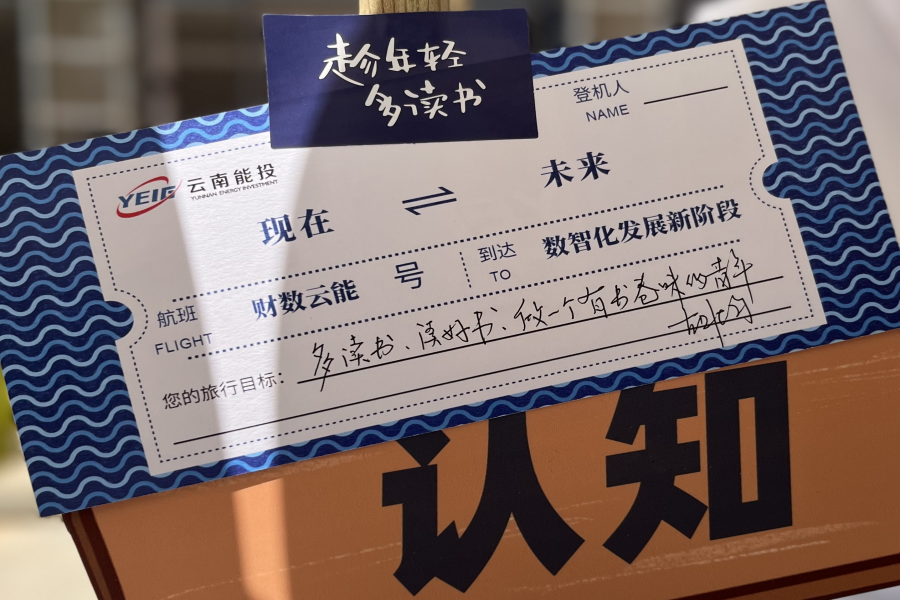 趁年轻
多读书
登机人
NAME
YEIG 云南能投
YUNNAN ENERGY INVESTMENT
现在 ⇌ 未来
航班 财数云能 号
FLIGHT
到达 数智化发展新阶段
TO
您的旅行目标: 多读书、读好书、做一个有书卷味的青年
认知